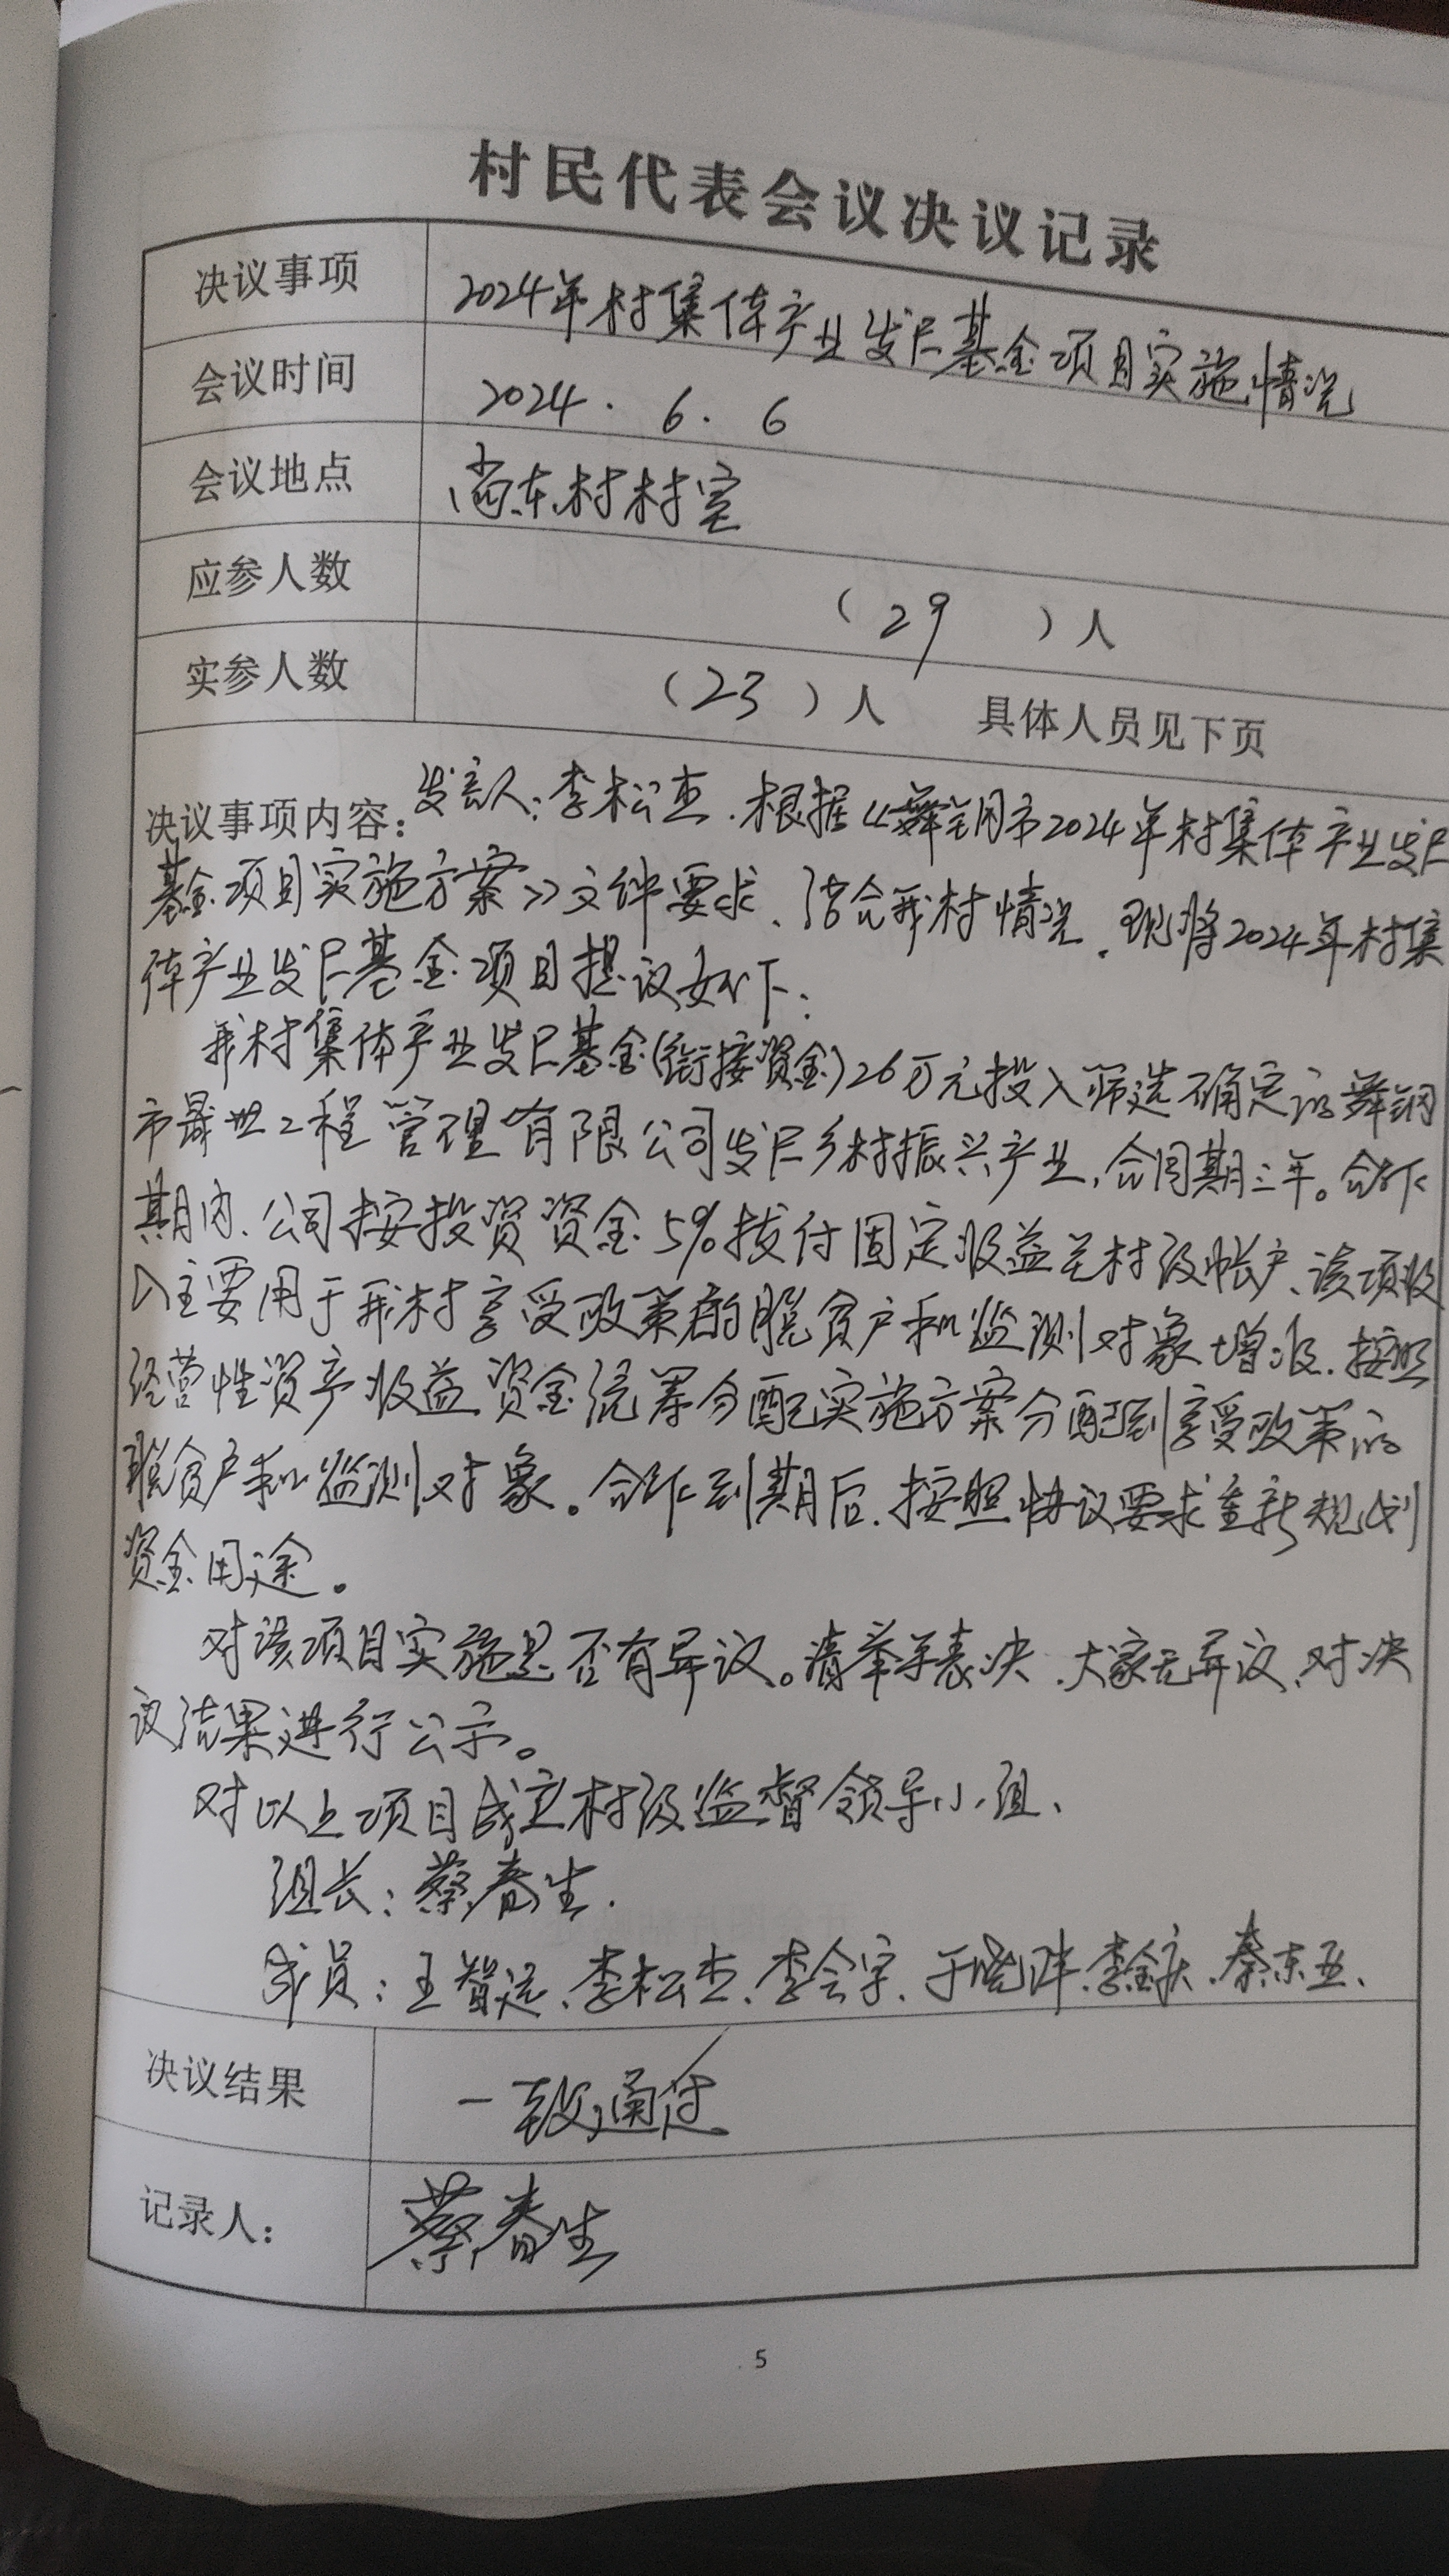 村民代表会议决议记录
决议事项 2024年村集体产业发展基金项目实施情况
会议时间 2024.6.6
会议地点 尚东村村室
应参人数 (29)人
实参人数 (23)人 具体人员见下页
决议事项内容:发言人:李松杰.根据《舞钢市2024年村集体产业发展
基金项目实施方案》文件要求、结合我村情况.现将2024年村集
体产业发展基金项目提议如下:
我村集体产业发展基金(衔接资金)26万元投入筛选确定的舞钢
市晟世工程管理有限公司发展乡村振兴产业,合同期三年。合作
期内、公司按投资资金5%拨付固定收益至村级帐户、该项收
入主要用于我村享受政策的脱贫户和监测对象增收.按照
经营性资产收益资金统筹分配实施方案分配到享受政策的
脱贫户和监测对象。合作到期后.按照协议要求重新规划
资金用途。
对该项目实施是否有异议。请举手表决.大家无异议、对决
议结果进行公示。
对以上项目成立村级监督领导小组、
组长:蔡春生.
成员:王智远、李松杰、李会宇、于晓洋.李金庆、秦东亚、
决议结果 一致通过
记录人: 蔡春生
5